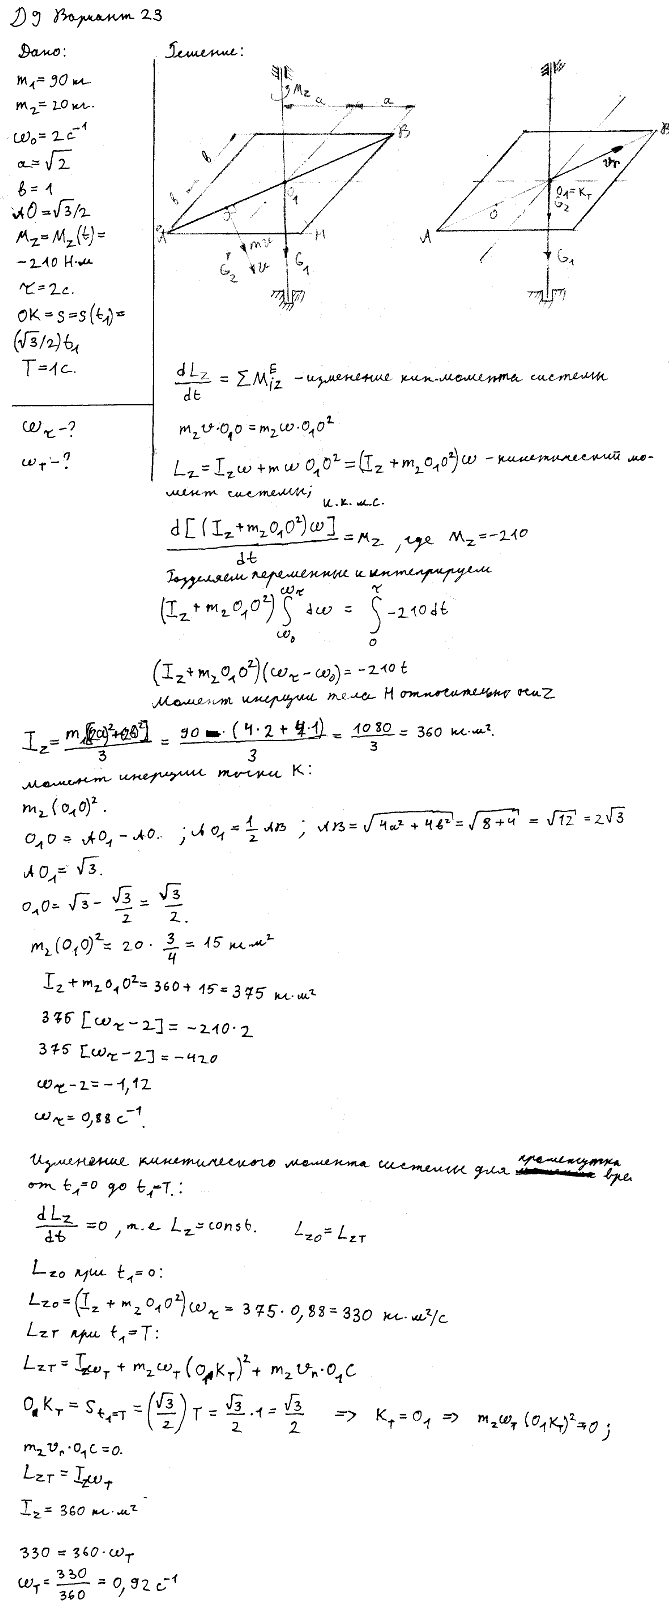 Д9 Вариант 23
Дано:
m₁=90 кг
m₂=20 кг.
ω₀=2 с⁻¹
a=√2
b=1
AO=√3/2
M_z=M_z(t)=
-210 Н·м
τ=2с.
OK=s=s(t₁)=
(√3/2)t₁
T=1с.
ω_τ-?
ω_T-?
Решение:
M_z
a a
b b
B
O₁
A
H
mv
G₂ v
G₁
B
v_r
O₁=K_T
O G₂
A
G₁
dL_z/dt = ΣM_iz^E - изменение кин. момента системы
m₂v·O₁O=m₂ω·O₁O²
L_z=I_zω+mωO₁O²=(I_z+m₂O₁O²)ω - кинетический мо-
мент системы;
и.к.м.с.
d[(I_z+m₂O₁O²)ω]/dt = M_z, где M_z=-210
Разделяем переменные и интегрируем
(I_z+m₂O₁O²) ∫_ω₀^ω_τ dω = ∫_0^τ -210dt
(I_z+m₂O₁O²)(ω_τ-ω₀)=-210t
Момент инерции тела H относительно оси Z
I_z= m₁[(2a)²+(2b)²]/3 = 90·(4·2+4·1)/3 = 1080/3 = 360 кг·м².
момент инерции точки K:
m₂(O₁O)².
O₁O=AO₁-AO. ; AO₁=1/2 AB ; AB=√(4a²+4b²)=√(8+4)=√12=2√3
AO₁=√3.
O₁O=√3-√3/2=√3/2.
m₂(O₁O)²=20·3/4=15 кг·м²
I_z+m₂O₁O²=360+15=375 кг·м²
375[ω_τ-2]=-210·2
375[ω_τ-2]=-420
ω_τ-2=-1,12
ω_τ=0,88 с⁻¹.
Изменение кинетического момента системы для промежутка вре
от t₁=0 до t₁=T.:
dL_z/dt=0, т.е L_z=const. L_z0=L_zT
L_z0 при t₁=0:
L_z0=(I_z+m₂O₁O²)ω_τ=375·0,88=330 кг·м²/с
L_zT при t₁=T:
L_zT=I_zω_T+m₂ω_T(O₁K_T)²+m₂v_r·O₁C
O₁K_T=S_t₁=T=(√3/2)T=√3/2·1=√3/2 => K_T=O₁ => m₂ω_T(O₁K_T)²=0;
m₂v_r·O₁C=0.
L_zT=I_zω_T
I_z=360 кг·м²
330=360·ω_T
ω_T=330/360=0,92 с⁻¹